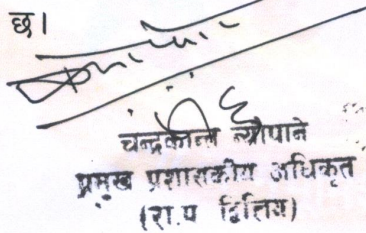 छ।
चन्द्रकान्त न्यौपाने
प्रमुख प्रशासकीय अधिकृत
(रा.प द्वितिय)